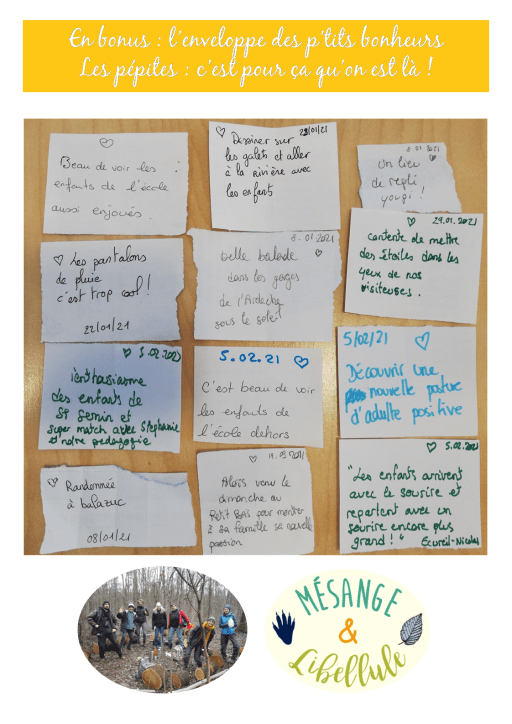 En bonus : l'enveloppe des p'tits bonheurs
Les pépites : c'est pour ça qu'on est là !
Beau de voir les :
enfants de l'école
aussi enjoués.
22/01/21
Dessiner sur
les galets et aller
à la rivière avec
les enfants
8.01.2021
Un lieu
de repli
youpi !
Les pantalons
de pluie
c'est trop cool !
22/01/21
8.01.2021
Belle balade
dans les gorges
de l'Ardèche
sous le soleil
29.01.2021
contente de mettre
des étoiles dans les
yeux de nos
visiteuses.
5.02.2021
l'enthousiasme
des enfants de
St Sernin et
super match avec Stéphanie
et notre pédagogie
5.02.21
C'est beau de voir
les enfants de
l'école dehors
5/02/21
Découvrir une
nouvelle posture
d'adulte positive
Randonnée
à balazuc
08/01/21
Aloïs venu le
dimanche au
Petit Bois pour montrer
à sa famille sa nouvelle
passion
5.02.2021
"Les enfants arrivent
avec le sourire et
repartent avec un
sourire encore plus
grand ! "
Écureuil-Nicolas
MÉSANGE
&
Libellule